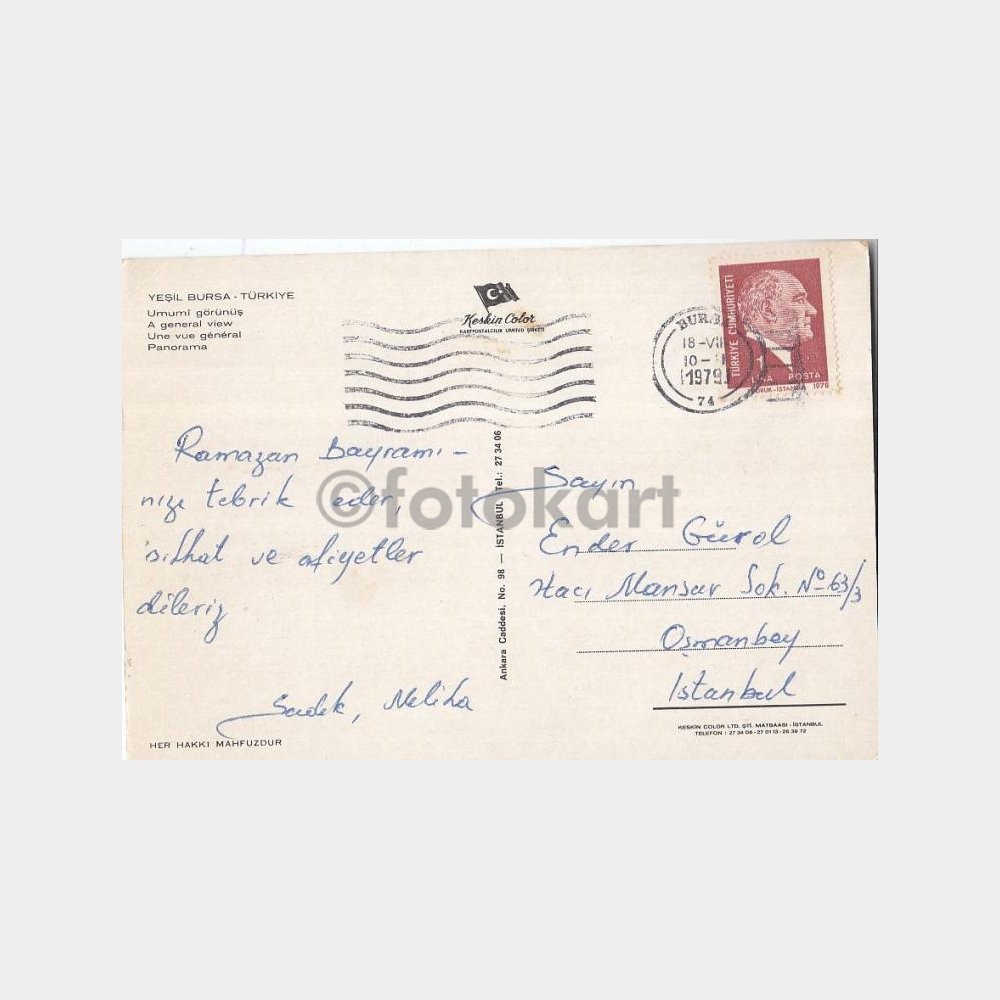 YEŞİL BURSA - TÜRKİYE
Umumî görünüş
A general view
Une vue général
Panorama
Keskin Color
KARTPOSTALCILIK LIMITED ŞİRKETİ
TÜRKİYE CUMHURİYETİ
LİRA POSTA
İSTANBUL 1978
18-VII
10-11
1979
74
Ramazan Bayramı-
nızı tebrik eder,
sıhhat ve afiyetler
dileriz
Sadık, Meliha
HER HAKKI MAHFUZDUR
Ankara Caddesi, No. 98 — İSTANBUL Tel.: 27 34 06
Sayın
Ender Gürol
Hacı Mansur Sok. No 63/3
Osmanbey
Istanbul
KESKIN COLOR LTD. ŞTİ. MATBAASI - İSTANBUL
TELEFON : 27 34 06 - 27 01 13 - 26 38 72
©fotokart